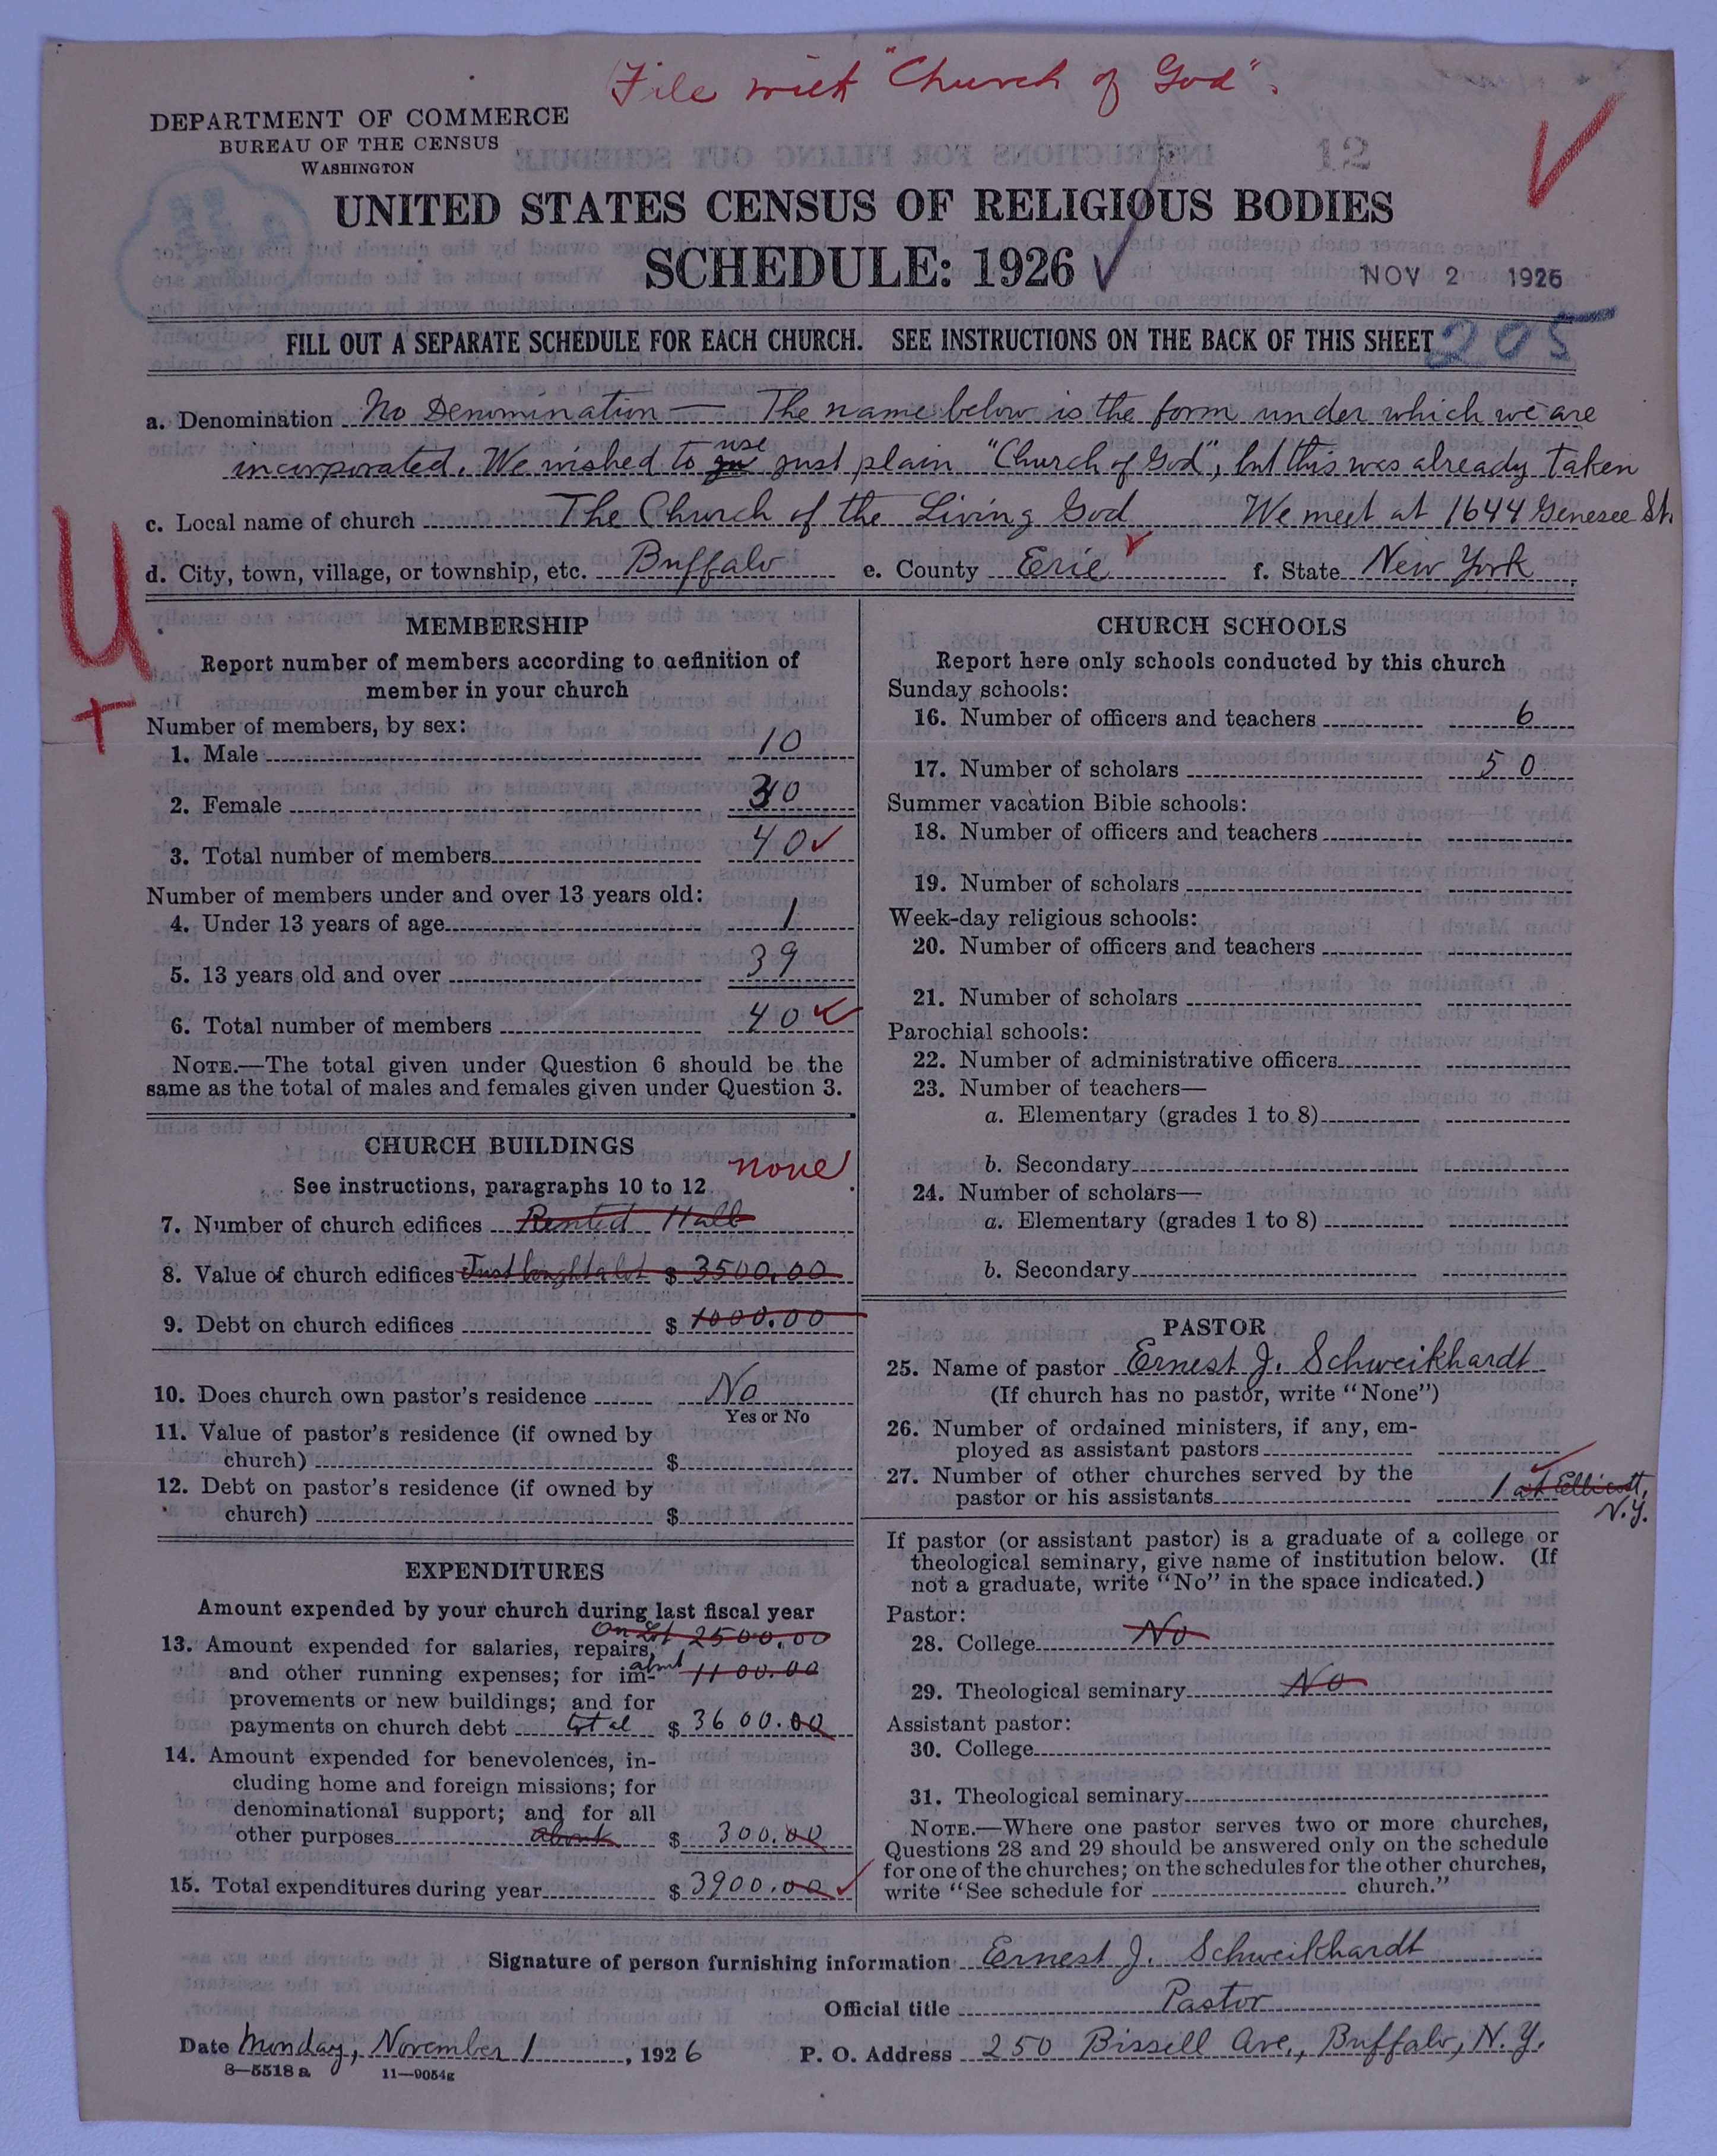 File with "Church of God".
DEPARTMENT OF COMMERCE
BUREAU OF THE CENSUS
WASHINGTON
12
UNITED STATES CENSUS OF RELIGIOUS BODIES
SCHEDULE: 1926
NOV 2 1926
FILL OUT A SEPARATE SCHEDULE FOR EACH CHURCH. SEE INSTRUCTIONS ON THE BACK OF THIS SHEET
205
a. Denomination No Denomination — The name below is the form under which we are
incorporated. We wished to use just plain "Church of God", but this was already taken
c. Local name of church The Church of the Living God We meet at 1644 Genesee St.
d. City, town, village, or township, etc. Buffalo e. County Erie f. State New York
U
+
MEMBERSHIP
Report number of members according to definition of
member in your church
Number of members, by sex:
1. Male 10
2. Female 30
3. Total number of members 40
Number of members under and over 13 years old:
4. Under 13 years of age 1
5. 13 years old and over 39
6. Total number of members 40
NOTE.—The total given under Question 6 should be the
same as the total of males and females given under Question 3.
CHURCH BUILDINGS
none
See instructions, paragraphs 10 to 12
7. Number of church edifices Rented Hall
8. Value of church edifices Just bought a lot $ 3500.00
9. Debt on church edifices $ 1000.00
10. Does church own pastor's residence No
Yes or No
11. Value of pastor's residence (if owned by
church) $
12. Debt on pastor's residence (if owned by
church) $
EXPENDITURES
Amount expended by your church during last fiscal year
On Lot 2500.00
13. Amount expended for salaries, repairs,
and other running expenses; for im- abnt 1100.00
provements or new buildings; and for
payments on church debt total $ 3600.00
14. Amount expended for benevolences, in-
cluding home and foreign missions; for
denominational support; and for all
other purposes about $ 300.00
15. Total expenditures during year $ 3900.00
CHURCH SCHOOLS
Report here only schools conducted by this church
Sunday schools:
16. Number of officers and teachers 6
17. Number of scholars 50
Summer vacation Bible schools:
18. Number of officers and teachers
19. Number of scholars
Week-day religious schools:
20. Number of officers and teachers
21. Number of scholars
Parochial schools:
22. Number of administrative officers
23. Number of teachers—
a. Elementary (grades 1 to 8)
b. Secondary
24. Number of scholars—
a. Elementary (grades 1 to 8)
b. Secondary
PASTOR
25. Name of pastor Ernest J. Schweikhardt
(If church has no pastor, write "None")
26. Number of ordained ministers, if any, em-
ployed as assistant pastors
27. Number of other churches served by the
pastor or his assistants 1 at Ellicott,
N.Y.
If pastor (or assistant pastor) is a graduate of a college or
theological seminary, give name of institution below. (If
not a graduate, write "No" in the space indicated.)
Pastor:
28. College No
29. Theological seminary No
Assistant pastor:
30. College
31. Theological seminary
NOTE.—Where one pastor serves two or more churches,
Questions 28 and 29 should be answered only on the schedule
for one of the churches; on the schedules for the other churches,
write "See schedule for church."
Signature of person furnishing information Ernest J. Schweikhardt
Official title Pastor
Date Monday, November 1, 1926 P. O. Address 250 Bissell Ave., Buffalo, N.Y.
8—5518 a 11—9054g